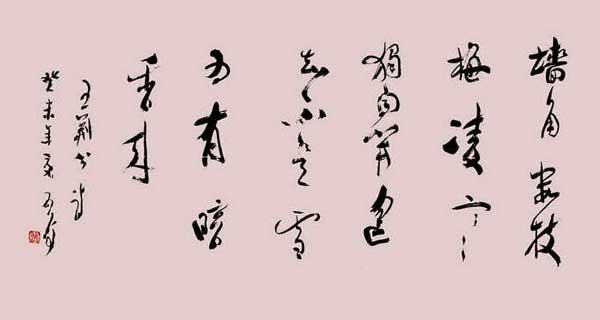 墙角数枝
梅凌寒
獨自開遥
知不是雪
为有暗
香来
王荆公诗
癸未年夏